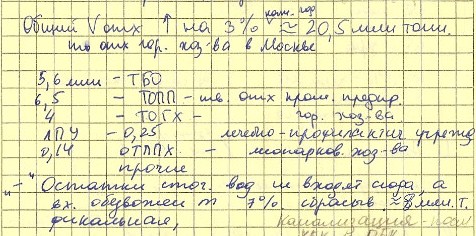 Общий V отх ↑ на 3% ≈ 20,5 млн тонн.
тв отх гор. хоз-ва в Москве
5,6 млн – ТБО
6,5 – ТОПП – тв. отх пром. предпр.
4 – ТОГХ – гор. хоз-ва
ЛПУ – 0,25 лечебно-профилактич учрежд
0,14 ОТЛПХ. – лесопарков. хоз-ва
прочие
„–" Остатки сточ. вод не входят сюда, а
их обезвожен 7% сбрасыв. ≈ 8 млн. т.
фекальная,
Канализация –